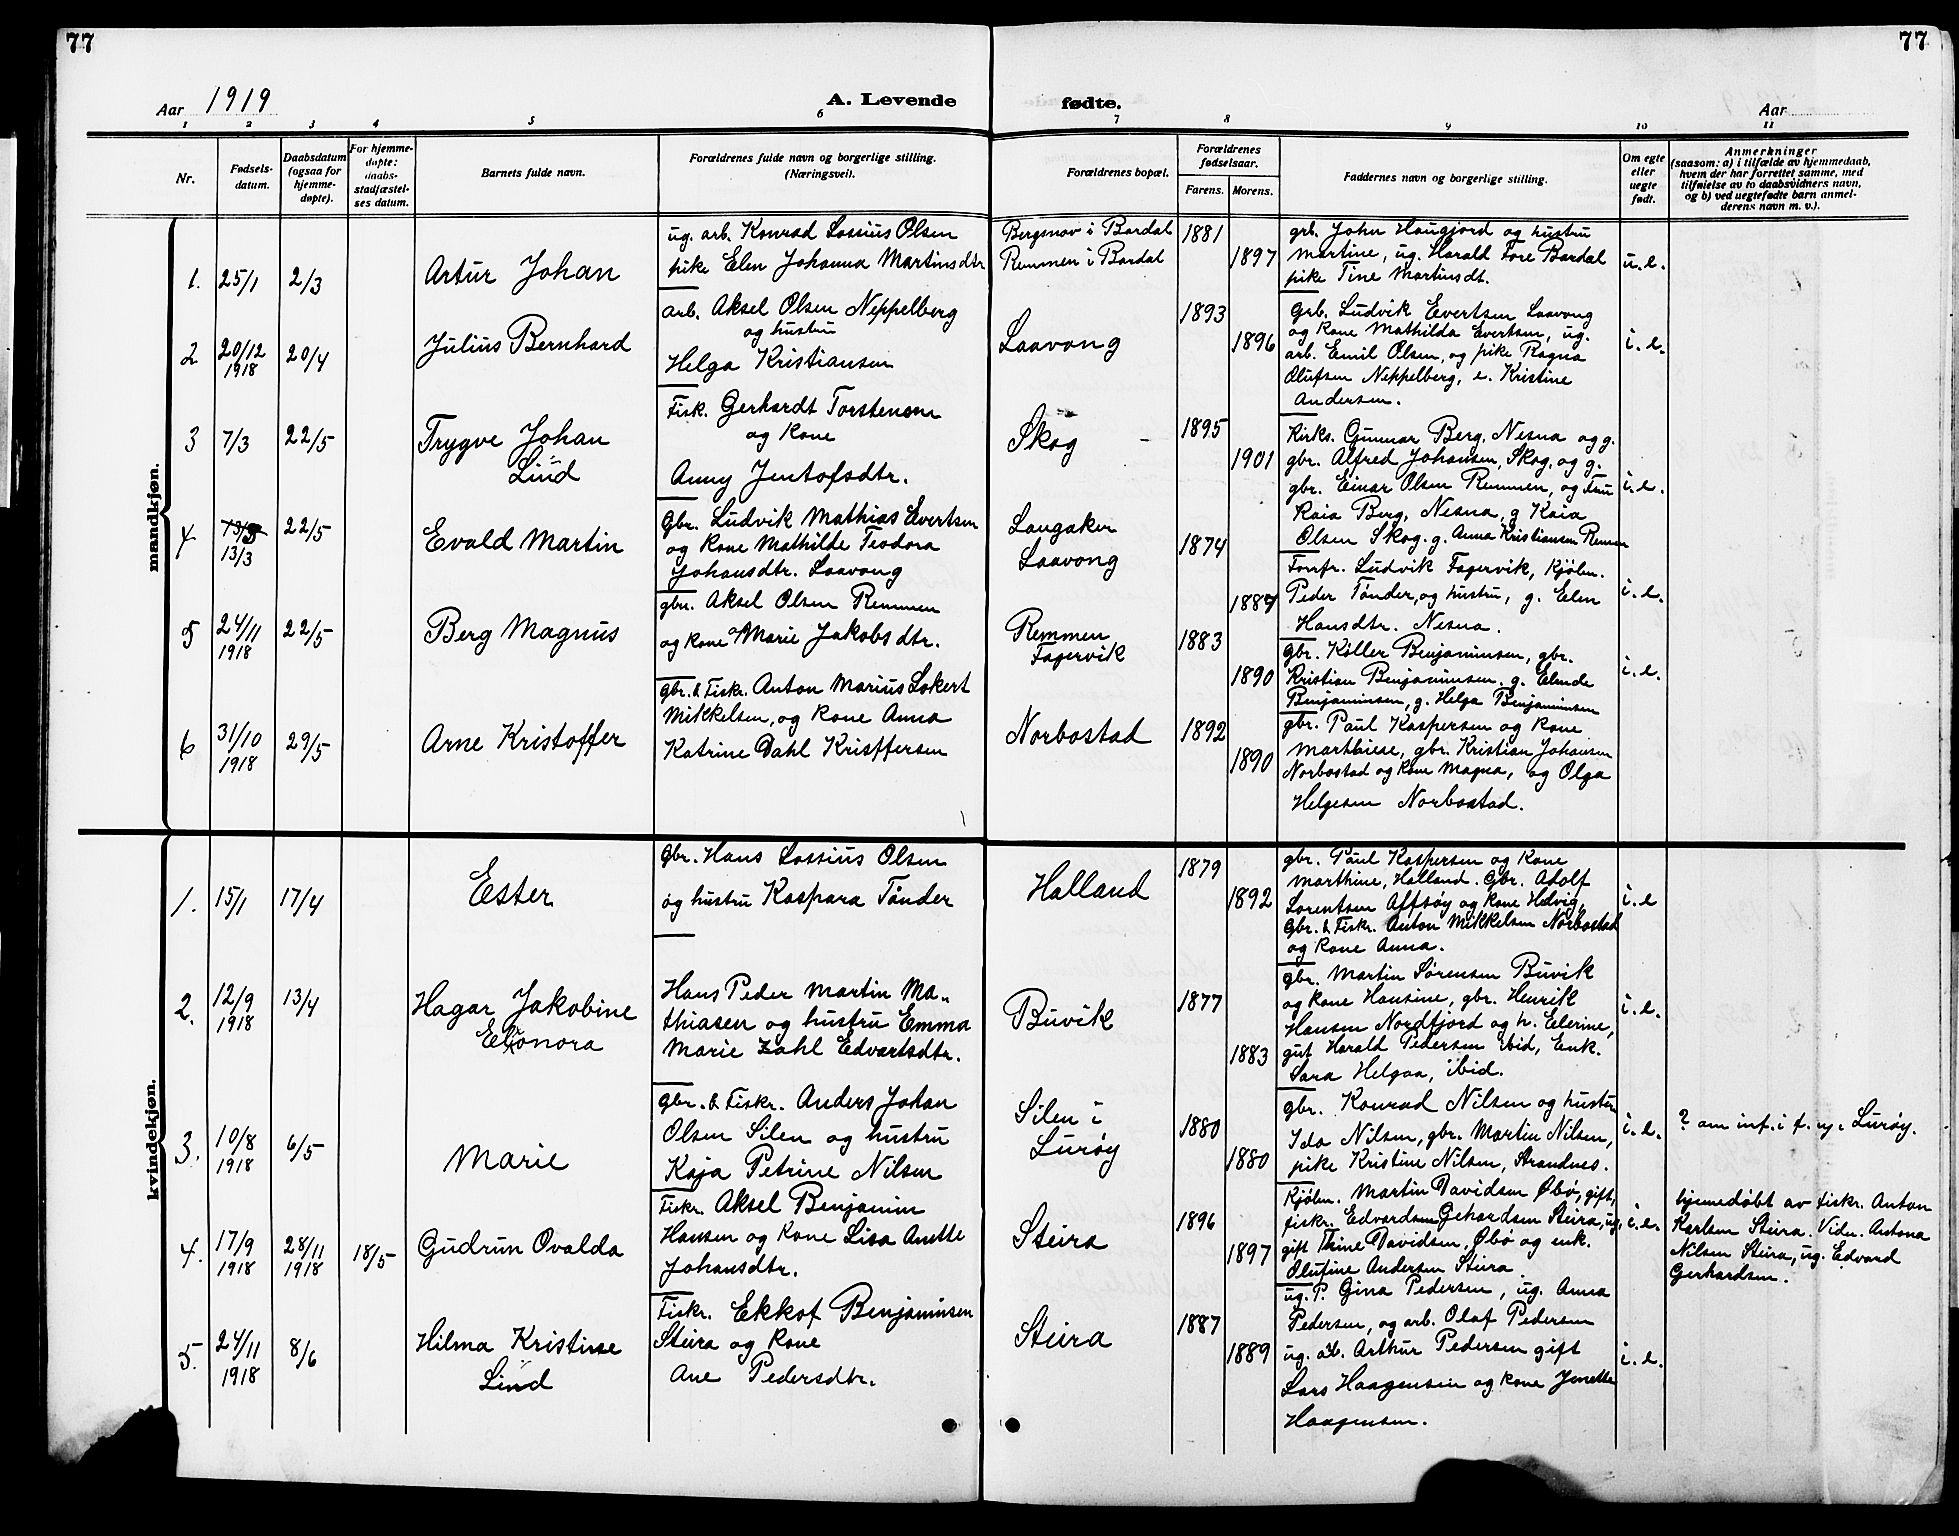 77
77
Aar 1919
A. Levende fødte.
Aar
1 2 3 4 5 6 7 8 9 10 11
Nr.
Fødsels-
datum.
Daabsdatum
(ogsaa for
hjemme-
døpte).
For hjemme-
døpte:
daabs-
stadfæstel-
ses datum.
Barnets fulde navn.
Forældrenes fulde navn og borgerlige stilling.
(Næringsvei).
Forældrenes bopæl.
Forældrenes
fødselsaar.
Farens. Morens.
Faddernes navn og borgerlige stilling.
Om egte
eller
uegte
født.
Anmerkninger
(saasom: a) i tilfælde av hjemmedaab,
hvem der har forrettet samme, med
tilføielse av to daabsvidners navn,
og b) ved uegtefødte barn anmel-
derens navn m. v.).
mandkjøn.
1. 25/1 2/3
Artur Johan
ug. arb. Konrad Lossius Olsen
pike Elen Johanna Martinsdtr
Bergsnov i Bardal
Remmen i Bardal
1881
1897
grb. John Haugjord og hustru
Martine, ug. Harald Fore Bardal
pike Tine Martinsdt.
u. e.
2 20/12 1918 20/4
Julius Bernhard
arb. Aksel Olsen Neppelberg
og hustru
Helga Kristiansen
Laavong
1893
1896
Grb. Ludvik Evertsen Laavong
og Kone Mathilda Evertsen, ug.
arb. Emil Olsen, og pike Ragna
Olufsen Neppelberg, e. Kristine
Andersen.
i. e.
3 7/3 22/5
Trygve Johan
Lind
Fisk. Gerhardt Torstensen
og Kone
Anny Jentofsdtr.
Skog
1895
1901
Kirks. Gunnar Berg, Nesna og g.
gbr. Alfred Johansen, Skog, og g.
gbr. Einar Olsen Remmen, og Fru
Kaia Berg, Nesna, g Kaia
Olsen Skog. g. Anna Kristiansen Remen
i. e.
4 13/3 22/5
Evald Martin
Gbr. Ludvik Mathias Evertsen
og Kone Mathilde Teodora
Johansdtr. Laavong
Langaker
Laavong
1874
1884
Forrfr. Ludvik Fagervik, Kjøbm.
Peder Tønder, og hustru, g. Elen
Hansdtr. Nesna.
i. e.
5 24/11 1918 22/5
Berg Magnus
gbr. Aksel Olsen Remmen
og Kone Marie Jakobsdtr.
Remmen
Fagervik
1883
1890
gbr. Køller Benjaminsen, gbr.
Kristian Benjaminsen. g. Elmde
Benjaminsen, g. Helga Benjaminsen
i. e.
6 31/10 1918 29/5
Arne Kristoffer
gbr. & Fiskr. Anton Marius Lokert
Mikkelsen, og Kone Anna
Katrine Dahl Krisffersen
Norbostad
1892
1890
gbr. Paul Kaspersen og Kone
gbr. Kristian Johansen
Norbostad og Kone Magna, og Olga
Helgesen Norbostad.
kvindekjøn.
1. 15/1 17/4
Ester
Gbr. Hans Lossius Olsen
og hustru Kaspara Tønder
Halland
1879
1892
gbr. Paul Kaspersen og Kone
Marthine, Halland. Gbr. Adolf
Lorentsen Affsøy og Kone Helvig,
Gbr. & Fiskr. Anton Mikkelsen Norbostad
og Kone Anna.
i. e
2. 12/9 1918 13/4
Hagar Jakobine
Elonora
Hans Peder Martin Ma-
thiasen og hustru Emma
Marie Zahl Edvartsdtr.
Buvik
1877
1883
gbr. Martin Sørensen Buvik
og Kone Hansine, gbr. Henrik
Hansen Nordfjord og h. Elerine,
gut Harald Pedersen ibid, Enk.
Sara Helgaa, ibid.
i. e.
3. 10/8 1918 6/5
Marie
gbr. & Fiskr. Anders Johan
Olsen Silen og hustru
Kaja Petrine Nilsen
Silen i
Lurøy
1880
1880
gbr. Konrad Nilsen og hustru
Ida Nilsen, gbr. Martin Nilsen,
pike Kristine Nilsen, Strandnes.
i. e.
? om inf. i f. Lurøy.
4. 17/9 1918 28/11 1918 18/5
Gudrun Ovalda
Fiskr. Aksel Benjamin
Hansen og Kone Lisa Anette
Johansdtr.
Steira
1896
1897
Kjøbm. Martin Davidsen Øbø, gift,
fiskr. Edvardsen Gehardsen Steira, ug,
gift Thine Davidsen, Øbø og enk.
Olufine Andersen Steira
i. e.
hjemedøbt av fiskr. Anton
Karlsen Steira. Vidn. Antona
Nilsen Steira, ug. Edvard
Gerhardsen.
5. 24/11 1918 8/6
Hilma Kristine
Lind
Fiskr. Ekkof Benjaminsen
Steira og Kone
Ane Pedersdtr.
Steira
1887
1889
ug. P. Gina Pedersen, ug. Anna
Pedersen, og arb. Olaf Pedersen
ug. arb. Arthur Pedersen gift
Lars Haagensen og Kone Jenette
Haagensen.
i. e.